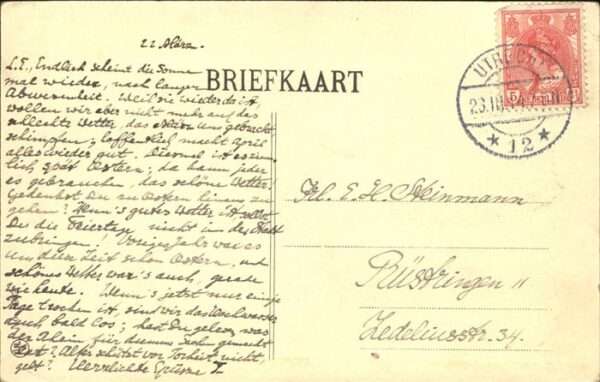 22 März.-
L. E., Endlich scheint die Sonne
mal wieder, nach langer
Abwesenheit. Weil sie wieder da ist,
wollen wir aber nicht mehr auf das
schlechte Wetter, das uns gebracht
schimpfen; hoffentlich macht April
alles wieder gut. Diesmal ist es ziem-
lich spät Ostern; da kann jeder
es gebrauchen, das schöne Wetter.
Gedenkst Du zu Ostern
gehen? Wenn's gutes Wetter ist, willst
Du die Feiertage nicht in der Stadt
zubringen! Voriges Jahr war es
um diese Zeit schon Ostern, und
schönes Wetter war's auch, gerade
wie heute. Wenn's jetzt nur einige
Tage trocken ist, sind wir das
auch bald los; hast Du gelesen, was
der Rhein für gemacht
hat? Alter schützt vor Torheit nicht,
gelt? Herzlichste Grüsse T.
BRIEFKAART
UTRECHT
23.III
★ 12 ★
5
Frl. E. H. Steinmann
Rüstringen II
Zedeliusstr. 34.